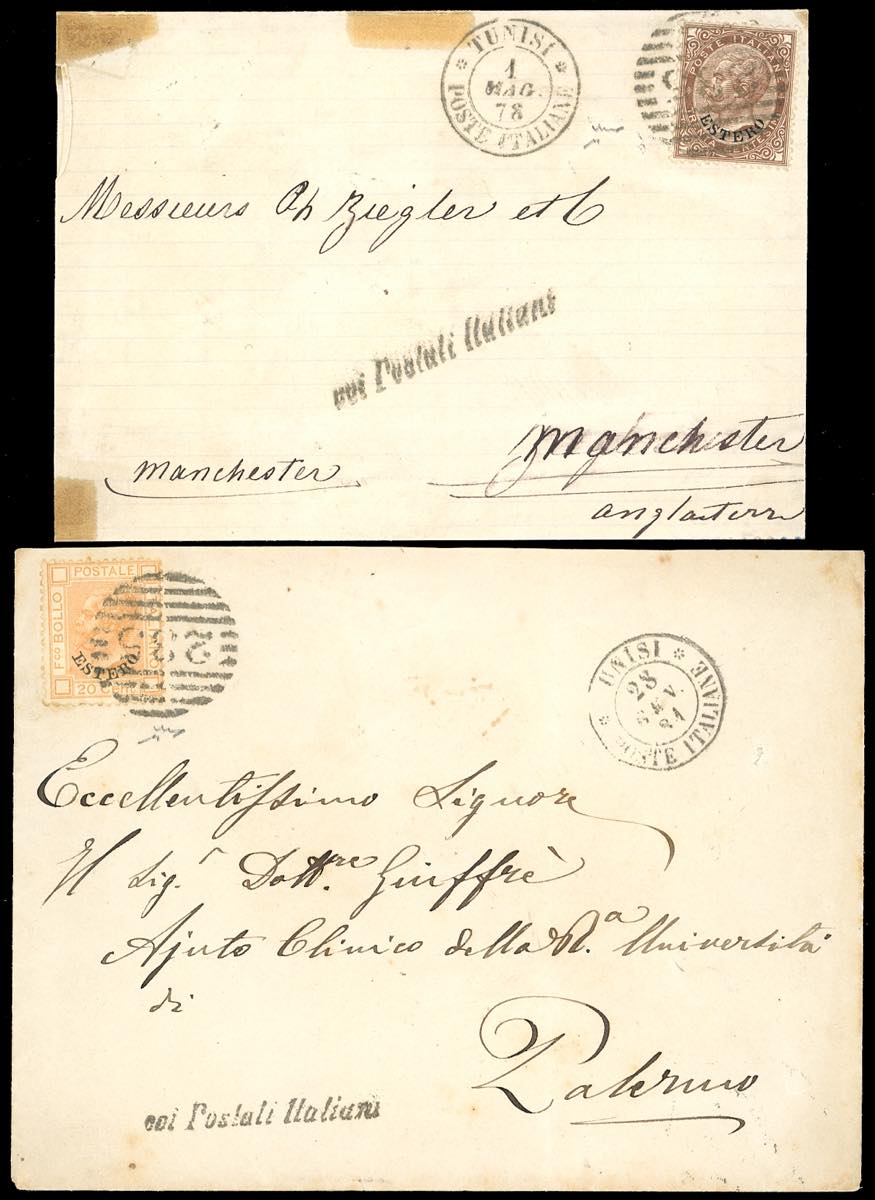 * TUNISI *
1
MAG.
78
POSTE ITALIANE
POSTE ITALIANE
ESTERO
Messieurs Ph Ziegler et C
coi Postali Italiani
Manchester
Manchester
Angleterre
POSTALE
Fco BOLLO
ESTERO
20 Cent
235
UNISI *
28
81
* POSTE ITALIANE
Eccellentissimo Signore
Il Sig.r Dott.re Giuffrè
Ajuto Clinico della R.a Università
di
Palermo
coi Postali Italiani